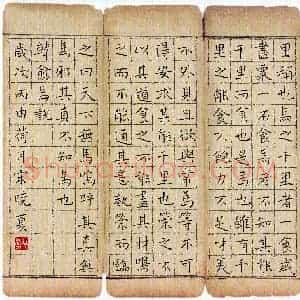 里稱也馬之千里者一食或
盡粟一石食馬者不知其能
千里而食也是馬也雖有千
里之能食不飽力不足才美
不外見且欲與常馬等不可
得安求其能千里也策之不
以其道食之不能盡其材鳴
之而不能通其意執策而臨
之曰天下無馬嗚呼其真無
馬邪其真不知馬也
韓愈馬說
歲次丙申荷月宋院夏